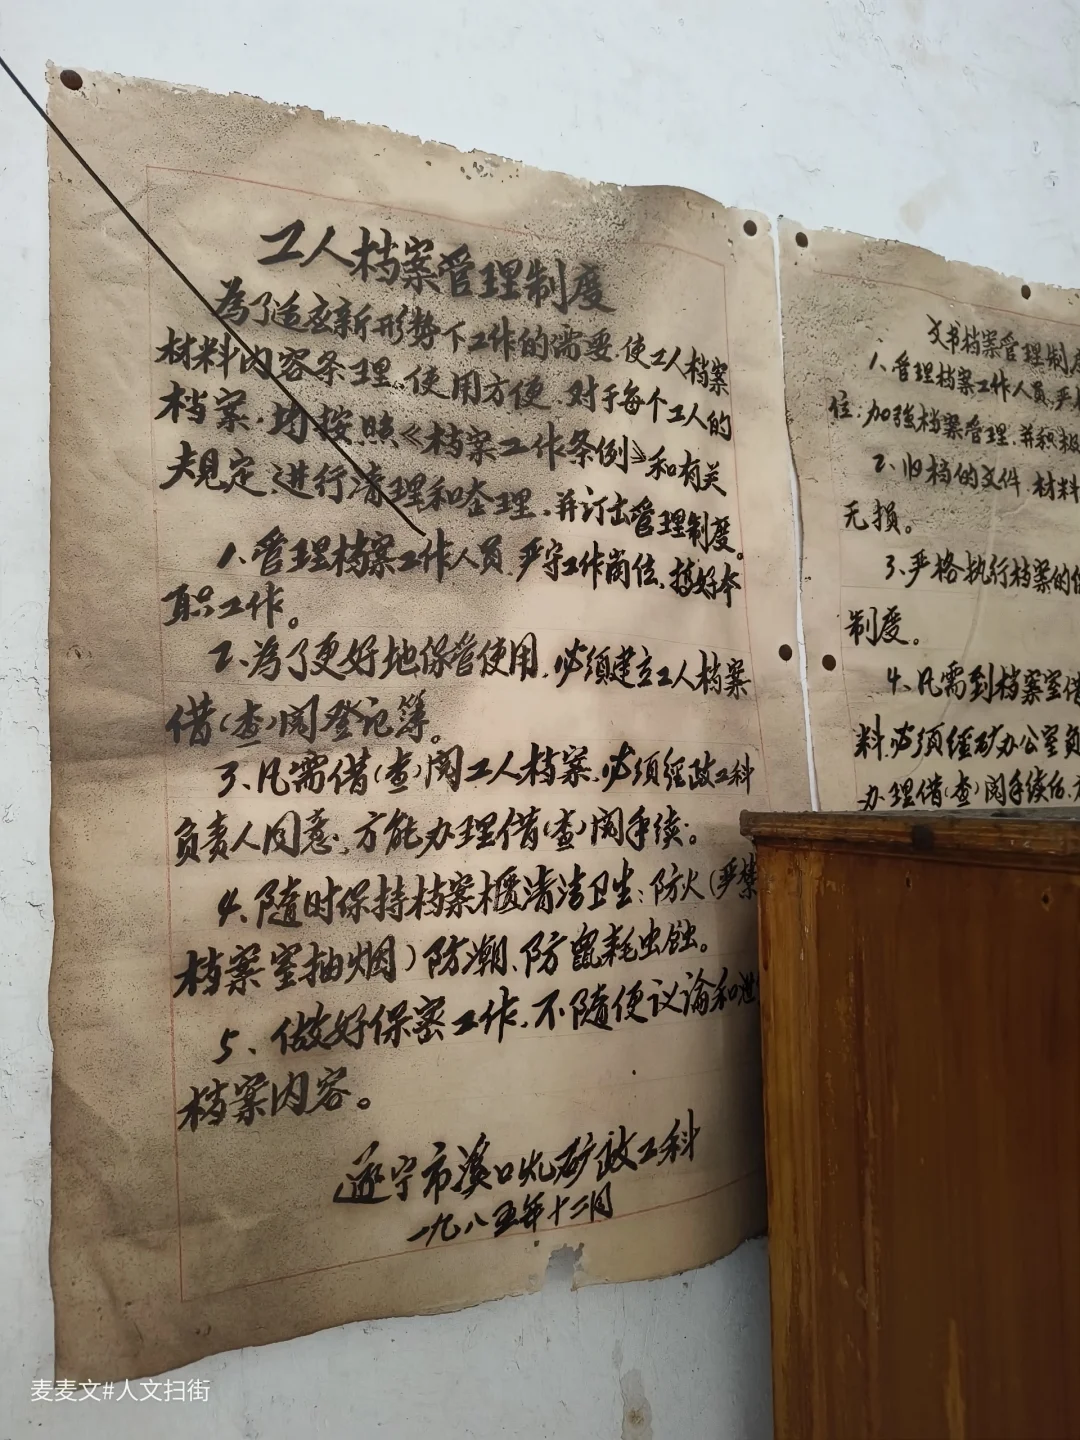 工人档案管理制度
為了适应新形势下工作的需要、使工人档案
材料内容条理、使用方便、对于每个工人的
档案、均按照《档案工作条例》和有关
规定、进行清理和整理、并订出管理制度。
1、管理档案工作人员、严守工作岗位、搞好本
职工作。
2、為了更好地保管使用、必须建立工人档案
借(查)阅登记簿。
3、凡需借(查)阅工人档案、必须经政工科
负责人同意、方能办理借(查)阅手续。
4、随时保持档案柜清洁卫生:防火(严禁
档案室抽烟)防潮、防鼠耗虫蚀。
5、做好保密工作、不随便议论和泄
档案内容。
遂宁市溪口 矿政工科
一九八五年十二月
文书档案管理制度
1、管理档案工作人员、严
位;加強档案管理、并积极
2、归档的文件、材料
无损。
3、严格执行档案的
制度。
4、凡需到档案室借
料、必须经矿办公室负
办理借(查)阅手续后、
麦麦文#人文扫街